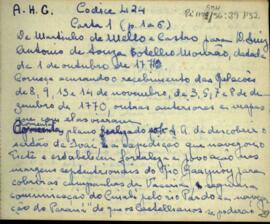 A. H. C. Codice 424
Carta 1 (p. 1 a 6)
De Martinho de Mello e Castro para D. Luiz
Antonio de Souza Botelho Mourão, datada
de 1 de outubro de 1771
Começa acusando o recebimento das relações
de 8, 9, 13 e 14 de novembro, de 3, 5, 7 e 8 de
dezembro de 1770, outras anteriores e mapas
que com elas vieram
plano S. A. de descobrir o
sertão de Ivai e a expedição que navegou o
e estabelecer fortaleza e povoação nas
margens septentrionais do Rio Guassú para
cobrir as campanhas de Vacaria e segurar a
comunicação do Cuiabá pelo rio Pardo e a navegação
do Paraná de que os Castelhanos se poderão